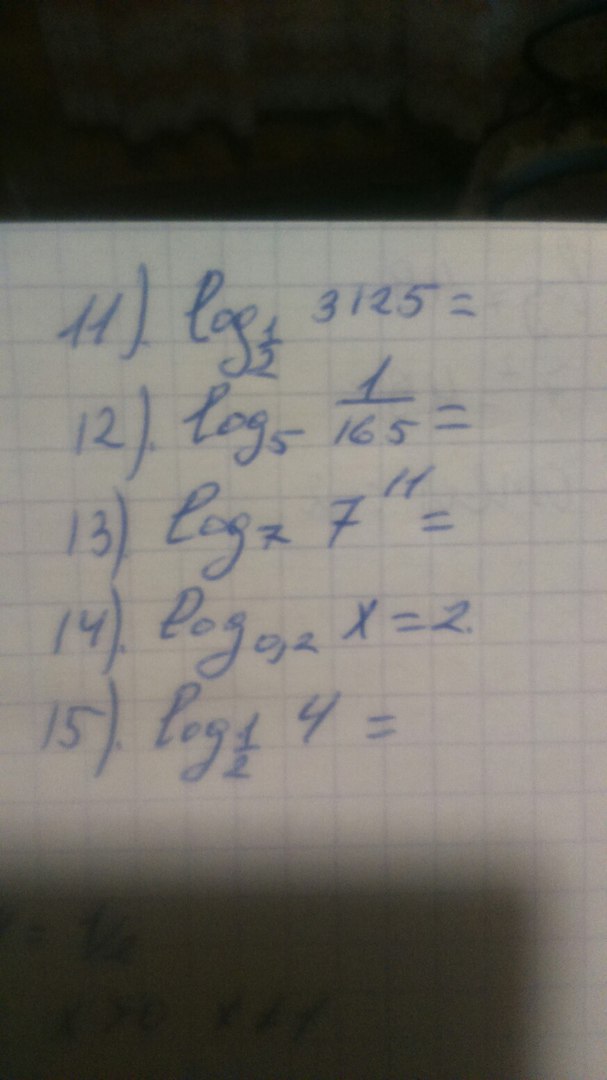 11). log_{1/2} 3125 =
12). log_5 1/165 =
13) log_7 7^{11} =
14). log_{0,2} x = 2.
15). log_{1/2} 4 =